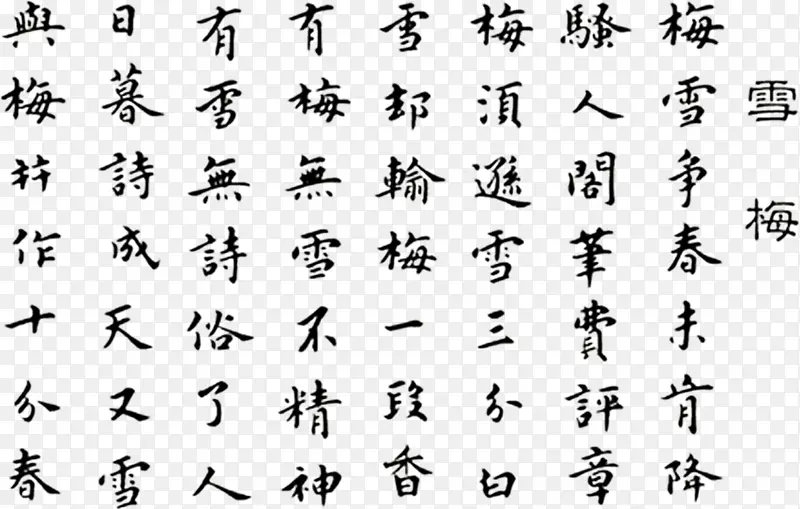 雪梅
梅雪争春未肯降
騷人閣筆費評章
梅須遜雪三分白
雪却輸梅一段香
有梅無雪不精神
有雪無詩俗了人
日暮詩成天又雪
與梅并作十分春